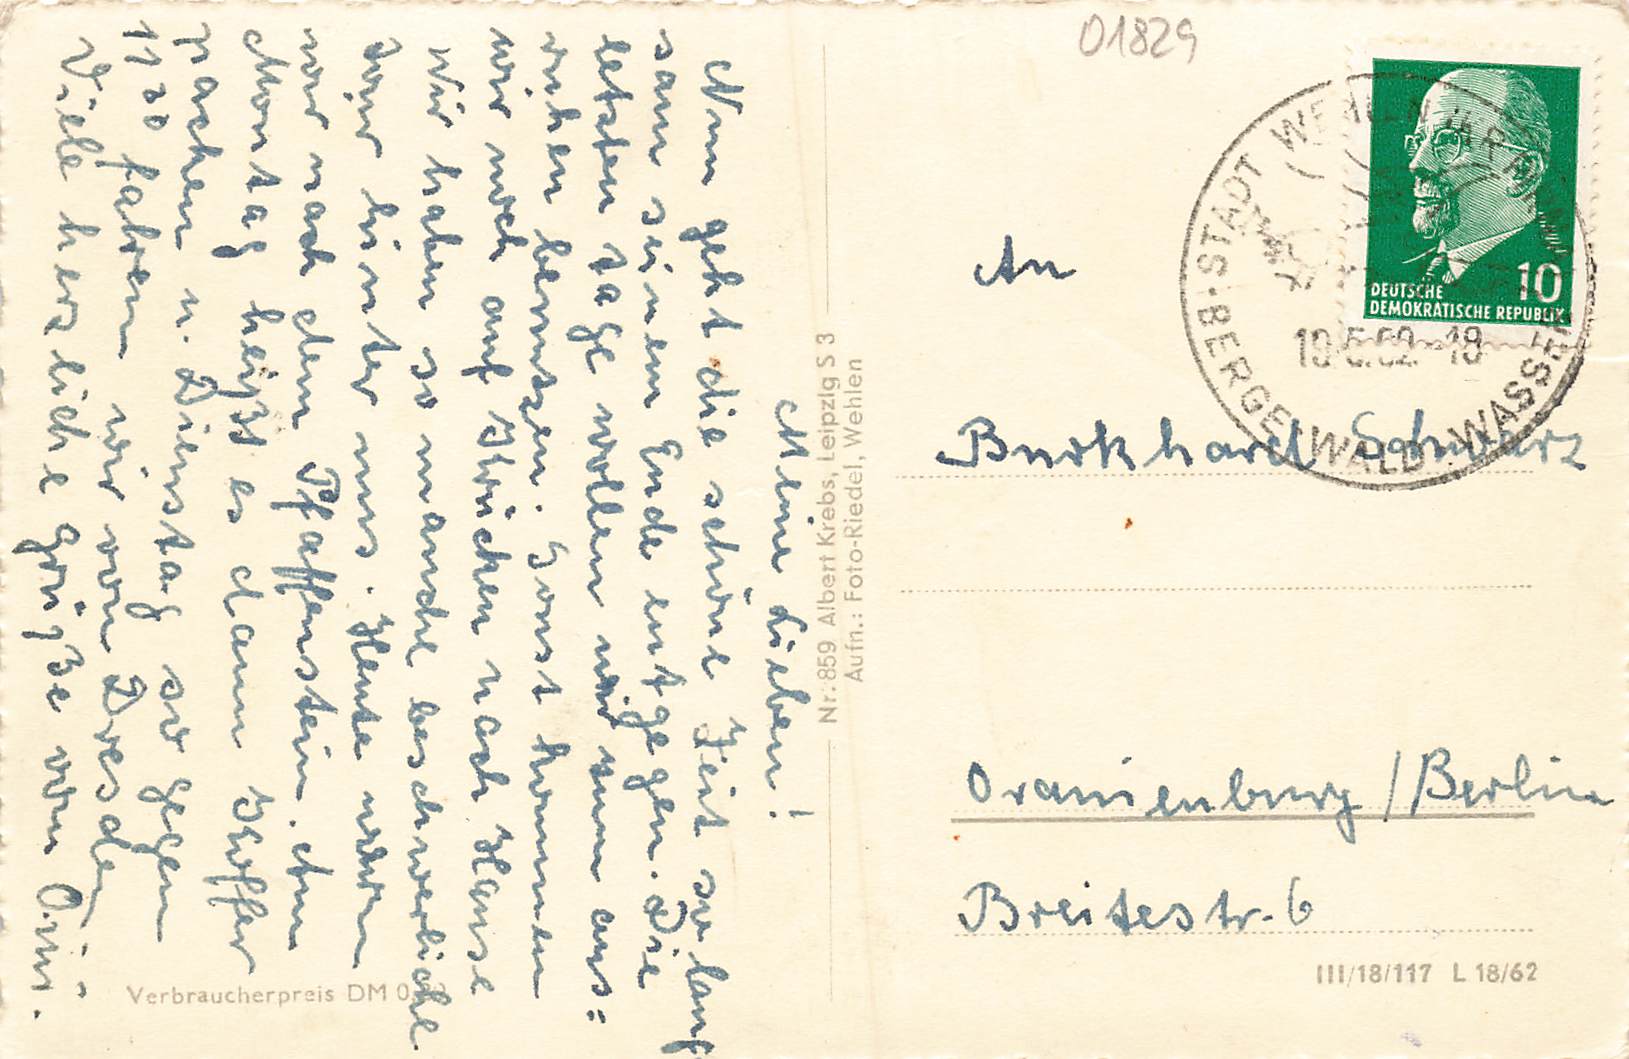 01829
Meine Lieben!
Nun geht die schöne Zeit so lang=
sam seinem Ende entgegen. Die
letzten Tage wollen wir nun aus=
ruhen benutzen. Sonst kommen
wir noch auf Krücken nach Hause
Wir haben so manche beschwerliche
hinter uns. Heute waren
wir nach dem Pfaffenstein. Am
Montag heißt es dann Koffer
packen u. Dienstag so gegen
1130 fahren wir von Dresden
Viele herzliche Grüße von
Verbraucherpreis DM 0,
Nr. 859 Albert Krebs, Leipzig S 3
Aufn.: Foto-Riedel, Wehlen
DEUTSCHE 10
DEMOKRATISCHE REPUBLIK
STADT WEHLEN
BERGE WALD WASSER
62-18
An
Burkhard Schwarz
Oranienburg / Berlin
Breitestr. 6
III/18/117 L 18/62